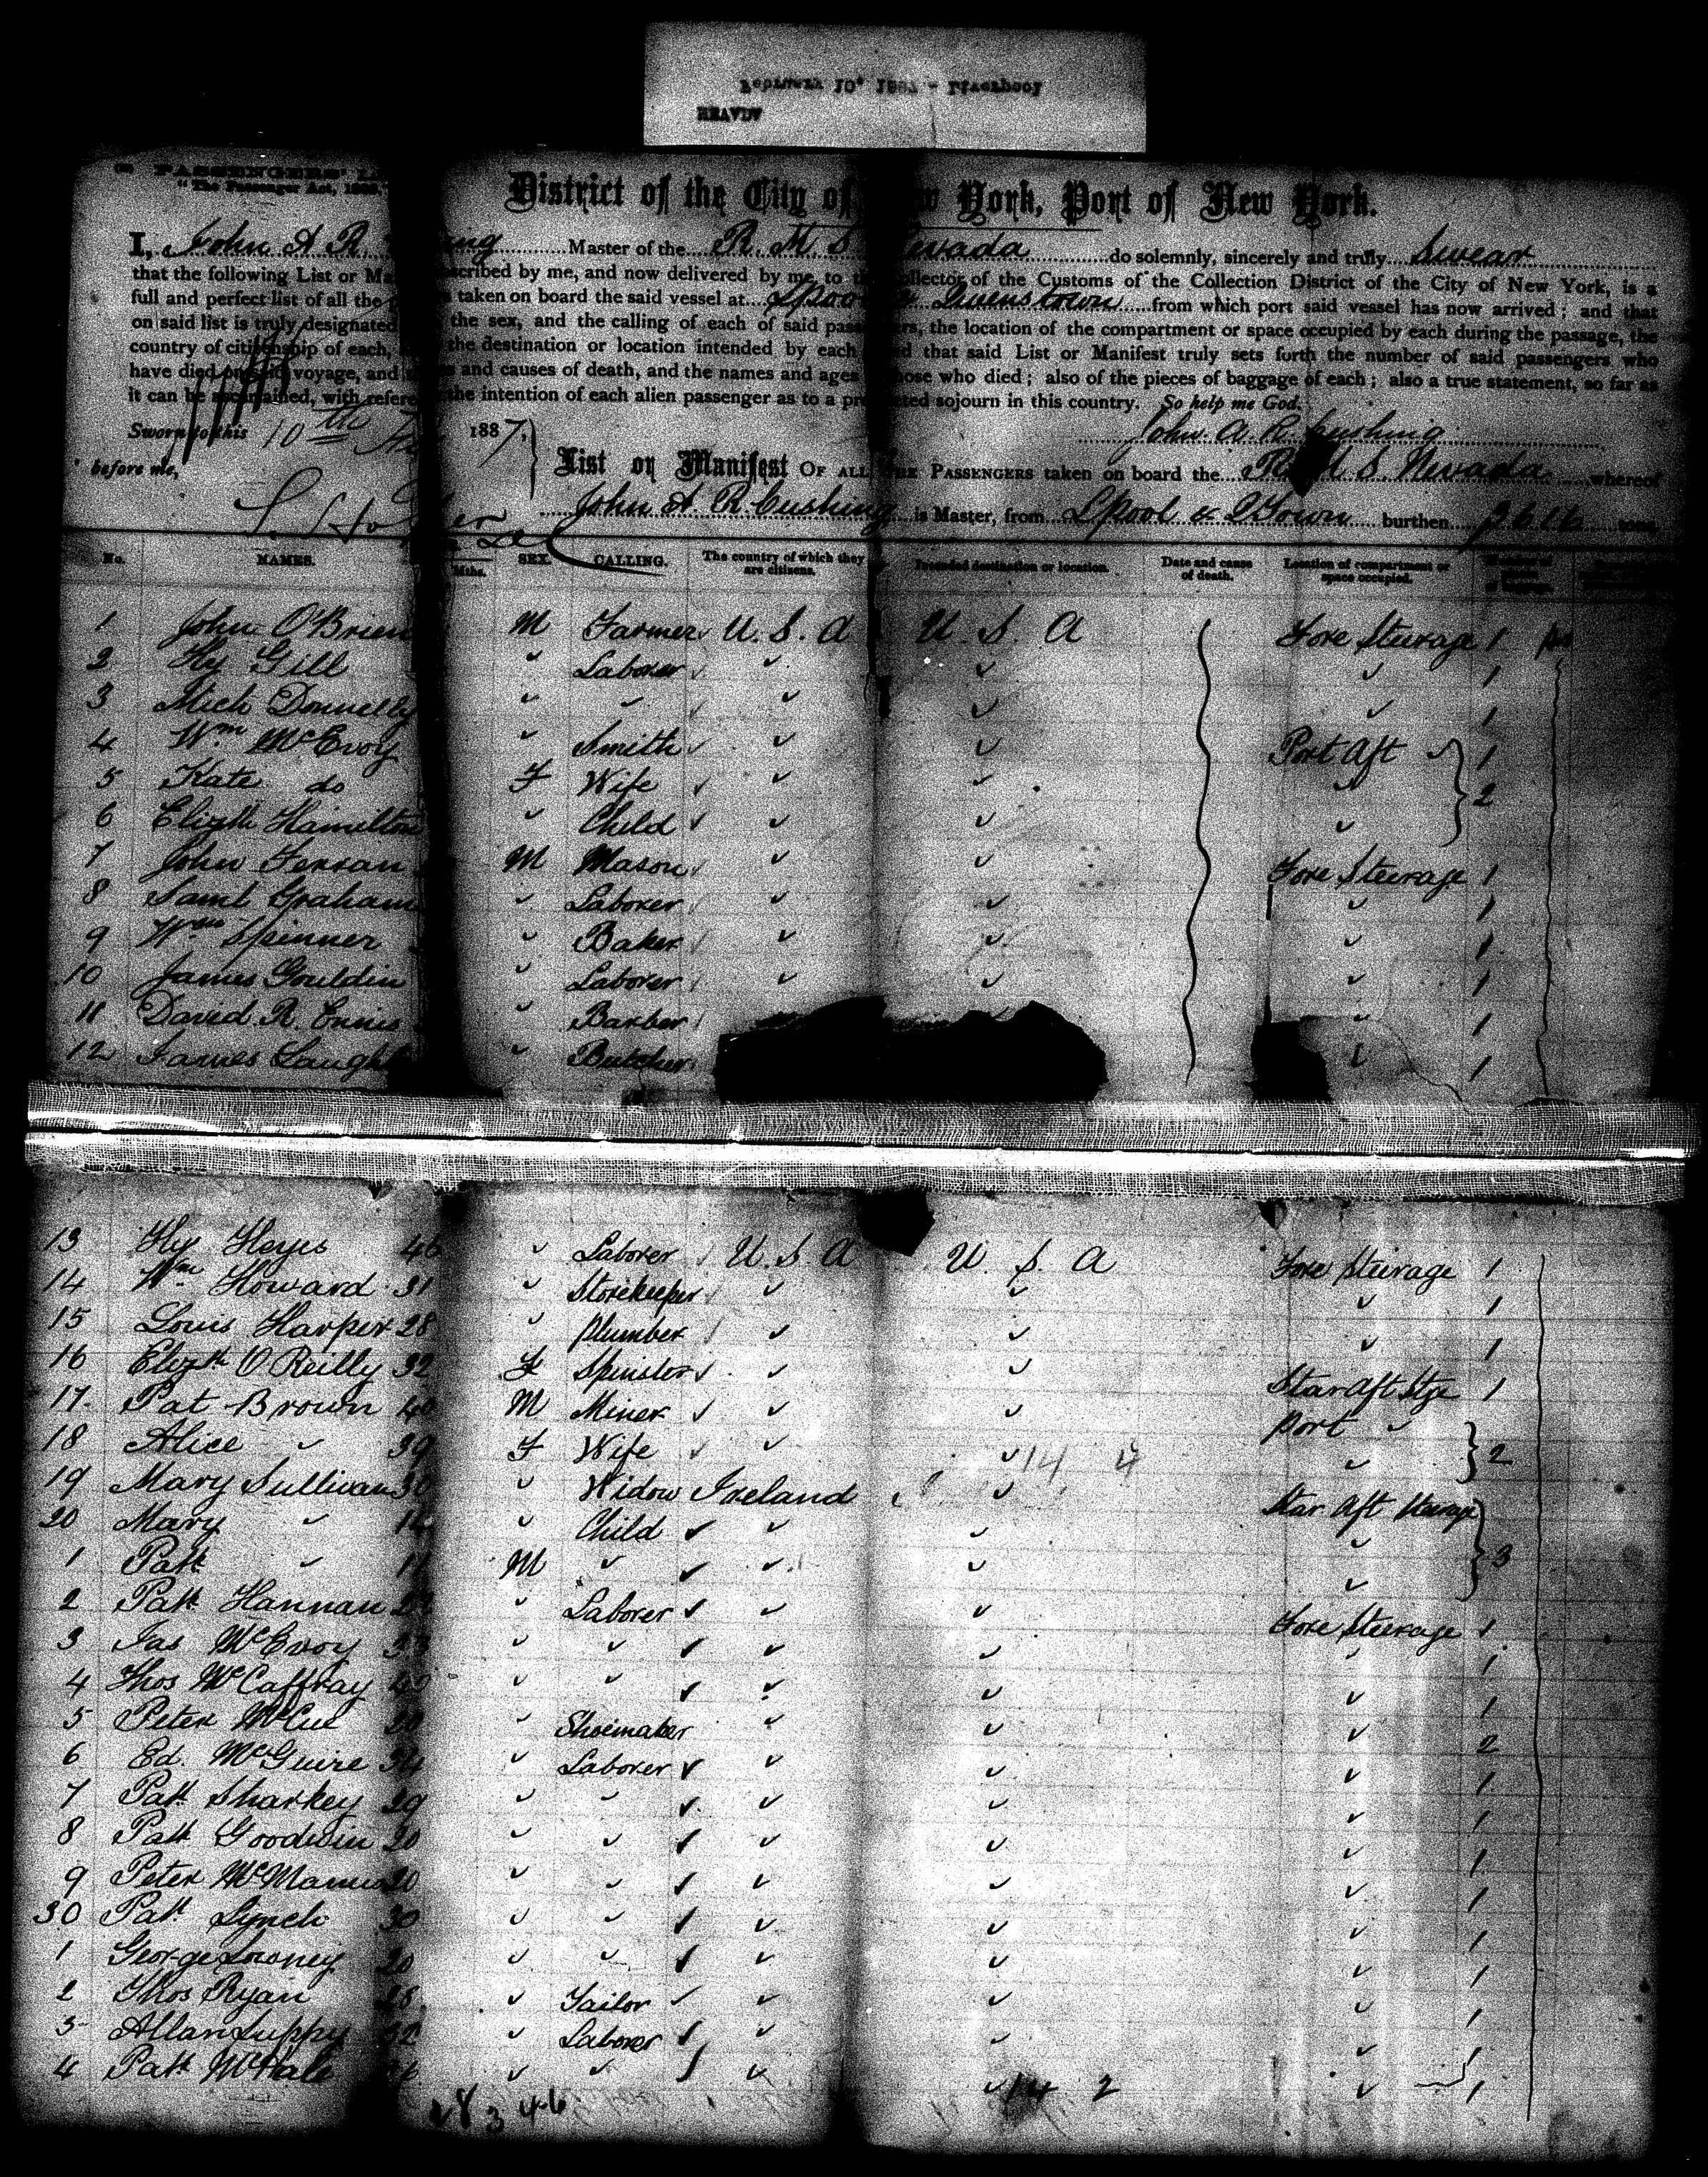 District of the City of New York, Port of New York.
"The Passenger Act,
I, John A. R. Cushing Master of the R. M. S. Nevada do solemnly, sincerely and truly Swear
that the following List or Ma scribed by me, and now delivered by me, to the Collector of the Customs of the Collection District of the City of New York, is a
full and perfect list of all the taken on board the said vessel at Lpool & Queenstown from which port said vessel has now arrived; and that
on said list is truly designated the sex, and the calling of each of said passengers, the location of the compartment or space occupied by each during the passage, the
country of citizenship of each, the destination or location intended by each and that said List or Manifest truly sets forth the number of said passengers who
have died on said voyage, and and causes of death, and the names and ages those who died; also of the pieces of baggage of each; also a true statement, so far as
it can be ascertained, with refere the intention of each alien passenger as to a protracted sojourn in this country. So help me God.
Sworn to this 10th 1887, John A. R. Cushing
before me,
List or Manifest OF ALL THE PASSENGERS taken on board the R. M. S. Nevada whereof
John A. R. Cushing is Master, from Lpool & QTown burthen 3616 tons
No. NAMES. Mths. SEX. CALLING. The country of which they are citizens. Intended destination or location. Date and cause of death. Location of compartment or space occupied.
1 John O'Brien M Farmer U. S. A U. S. A Fore Steerage 1
2 Hy Gill " Laborer " " " 1
3 Mich Donnelly " " " " " 1
4 Wm McEvoy " Smith " " Port Aft " 1
5 Kate do F Wife " " " 2
6 Elizth Hamilton " Child " " "
7 John Ferran M Mason " " Fore Steerage 1
8 Saml Graham " Laborer " " " 1
9 Wm Spinner " Baker " " " 1
10 James Gouldin " Laborer " " " 1
11 David R. Ennis " Barber " 1
12 James Laugh " Butcher " 1
13 Hy Heyes 46 " Laborer U. S. A U. S. A Fore Steerage 1
14 Wm Howard 31 " Storekeeper " " " 1
15 Louis Harper 28 " Plumber " " " 1
16 Elizth O'Reilly 32 F Spinster " " Star Aft Stge 1
17 Pat Brown 40 M Miner " " Port "
18 Alice " 39 F Wife " " 14 4 " 2
19 Mary Sullivan 30 " Widow Ireland " Star. Aft Steerage
20 Mary " " Child " " " 3
1 Patk " 11 M " " " "
2 Patk Hannan " Laborer " " Fore Steerage 1
3 Jas McEvoy " " " " " 1
4 Thos McCaffray " " " " " 1
5 Peter McCue 20 " Shoemaker " " " 2
6 Ed. McGuire 34 " Laborer " " " 1
7 Patk Sharkey 29 " " " " " 1
8 Patk Goodwin 20 " " " " " 1
9 Peter McManus 20 " " " " " 1
30 Patk Lynch 30 " " " " " 1
1 George Looney 20 " " " " " 1
2 Thos Ryan 28 " Tailor " " " 1
3 Allan Luppy 32 " Laborer " " " 1
4 Patk McHale " " " " 14 2 " 1
8 3 46